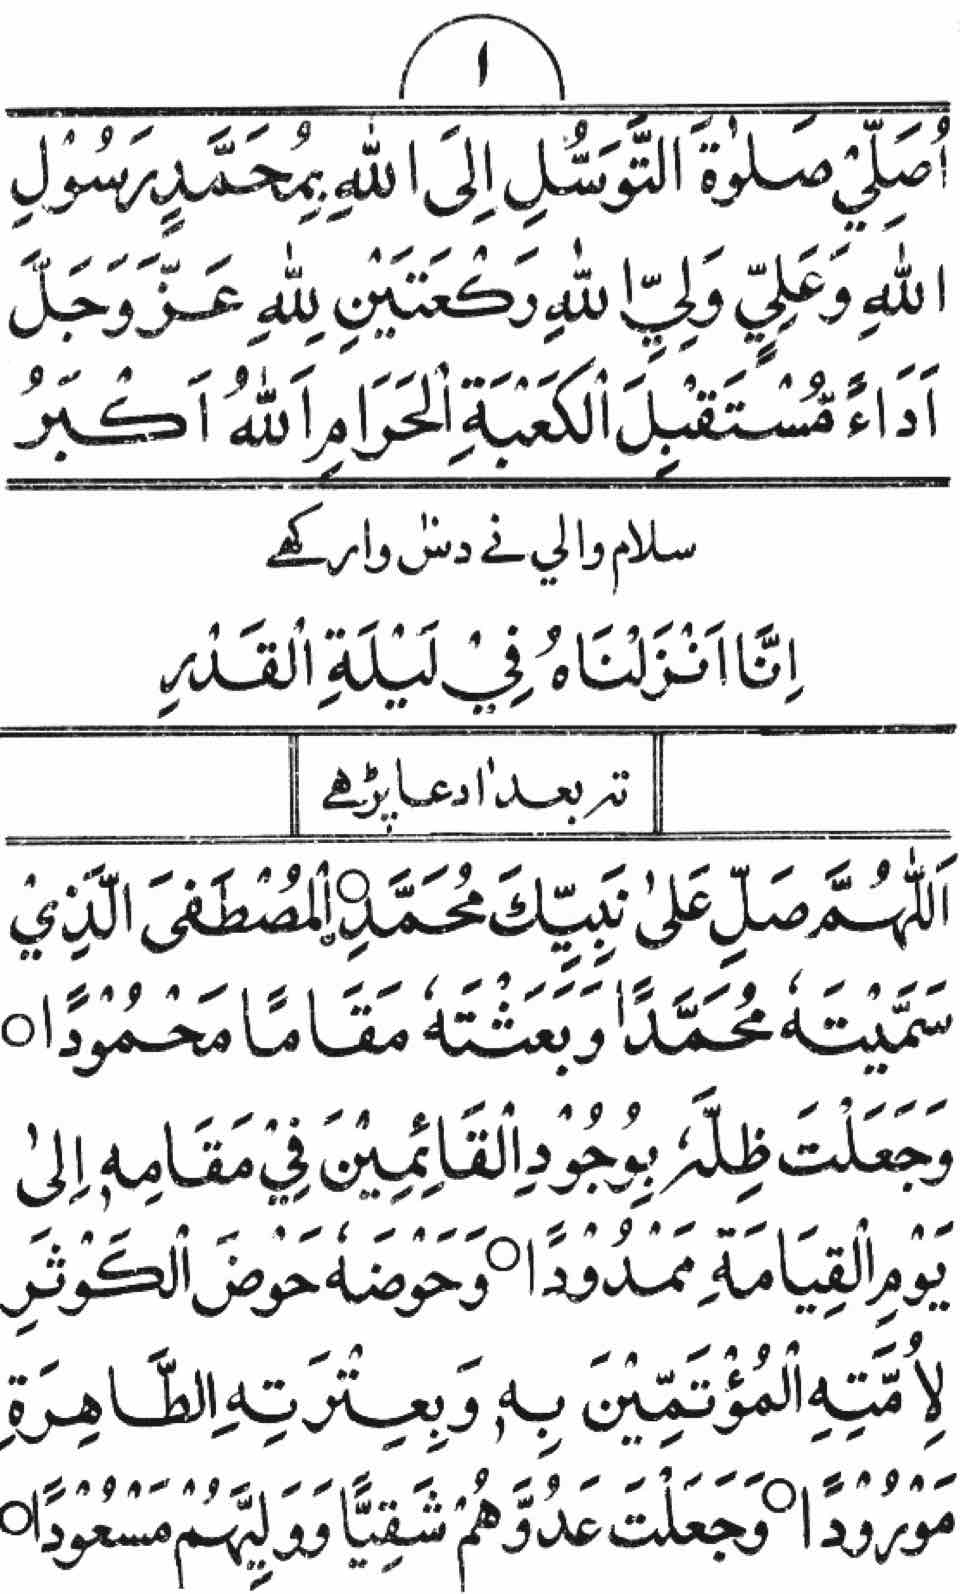 ا
اُصَلِّيْ صَلٰوةَ التَّوَسُّلِ اِلَى اللهِ بِمُحَمَّدٍ رَسُوْلِ
اللهِ وَعَلِيٍّ وَلِيِّ اللهِ رَكْعَتَيْنِ لِلّٰهِ عَزَّ وَجَلَّ
اَدَاءً مُّسْتَقْبِلَ الْكَعْبَةِ الْحَرَامِ اَللهُ اَكْبَرُ
سلام والي نے دس وار كهے
اِنَّا اَنْزَلْنَاهُ فِيْ لَيْلَةِ الْقَدْرِ
تہ بعد ا دعا پڑهے
اَللّٰهُمَّ صَلِّ عَلىٰ نَبِيِّكَ مُحَمَّدِ ○ الْمُصْطَفىَ الَّذِيْ
سَمَّيْتَهٗ مُحَمَّدًا وَبَعَثْتَهٗ مَقَامًا مَحْمُوْدًا ○
وَجَعَلْتَ ظِلَّهٗ بِوُجُوْدِ الْقَائِمِيْنَ فِيْ مَقَامِهٖ اِلىٰ
يَوْمِ الْقِيَامَةِ مَمْدُوْدًا ○ وَحَوْضَهٗ حَوْضَ الْكَوْثَرِ
لِاُمَّتِهِ الْمُؤْتَمِّيْنَ بِهٖ وَبِعِتْرَتِهِ الطَّاهِرَةِ
مَوْرُوْدًا ○ وَجَعَلْتَ عَدُوَّهُمْ شَقِيًّا وَوَلِيَّهُمْ مَسْعُوْدًا ○